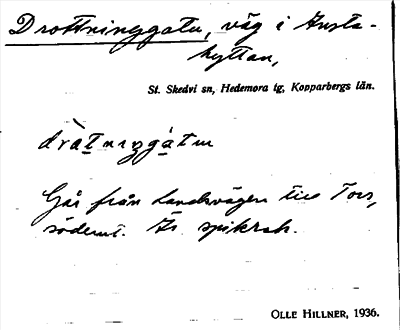 Drottninggatu, väg i Av̄sta-
hyttan,
St. Skedvi sn, Hedemora tg, Kopparbergs län.
Går från landsvägen till Tors,
söderut. Är spikrak.
OLLE HILLNER, 1936.